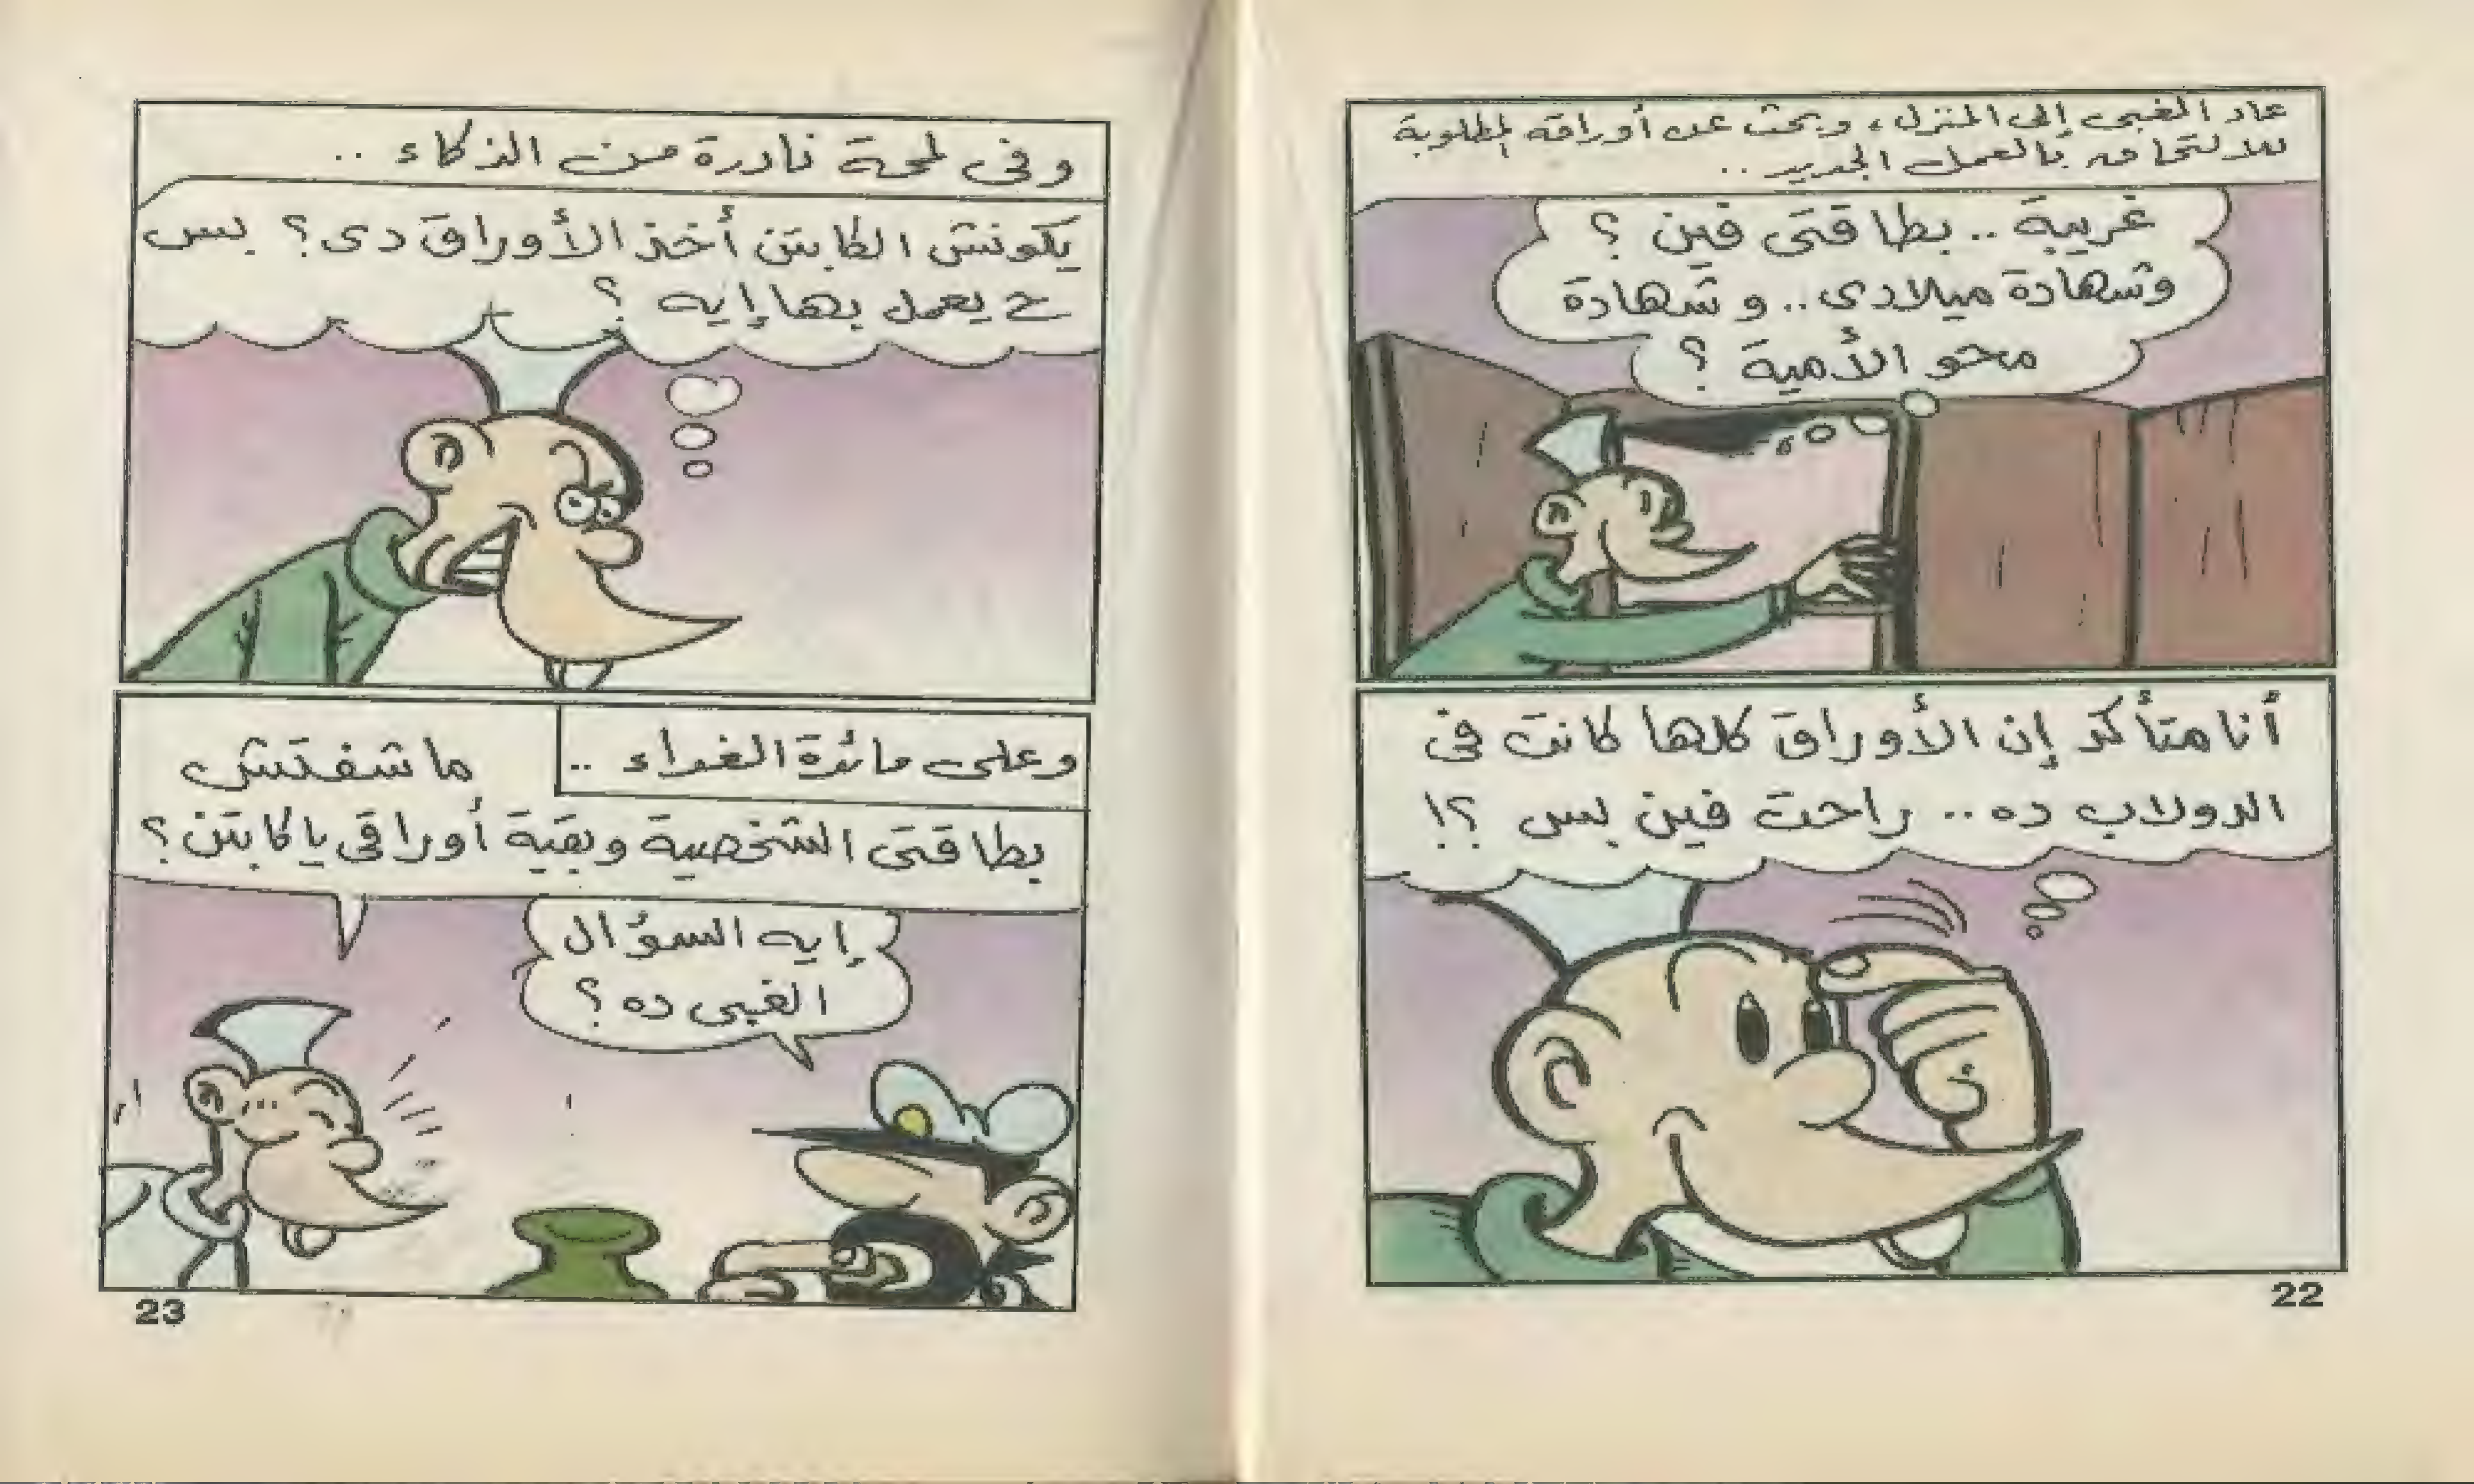 عاد الغبى إلى المنزل، وبحث عن أوراقه المطلوبة
للالتحاق بالعمل الجديد ..
غريبة .. بطاقتى فين ؟
وشهادة ميلادى .. وشهادة
محو الأمية ؟
أنا متأكد إن الأوراق كلها كانت فى
الدولاب ده .. راحت فين بس ؟!
22
وفى لمحة نادرة من الذكاء ..
يكونش الكابتن أخذ الأوراق دى؟ بس
ح يعمل بها إيه ؟
وعلى مائدة الغداء ..
ما شفتش
بطاقتى الشخصية وبقية أوراقى يا كابتن؟
إيه السؤال
الغبى ده ؟
23